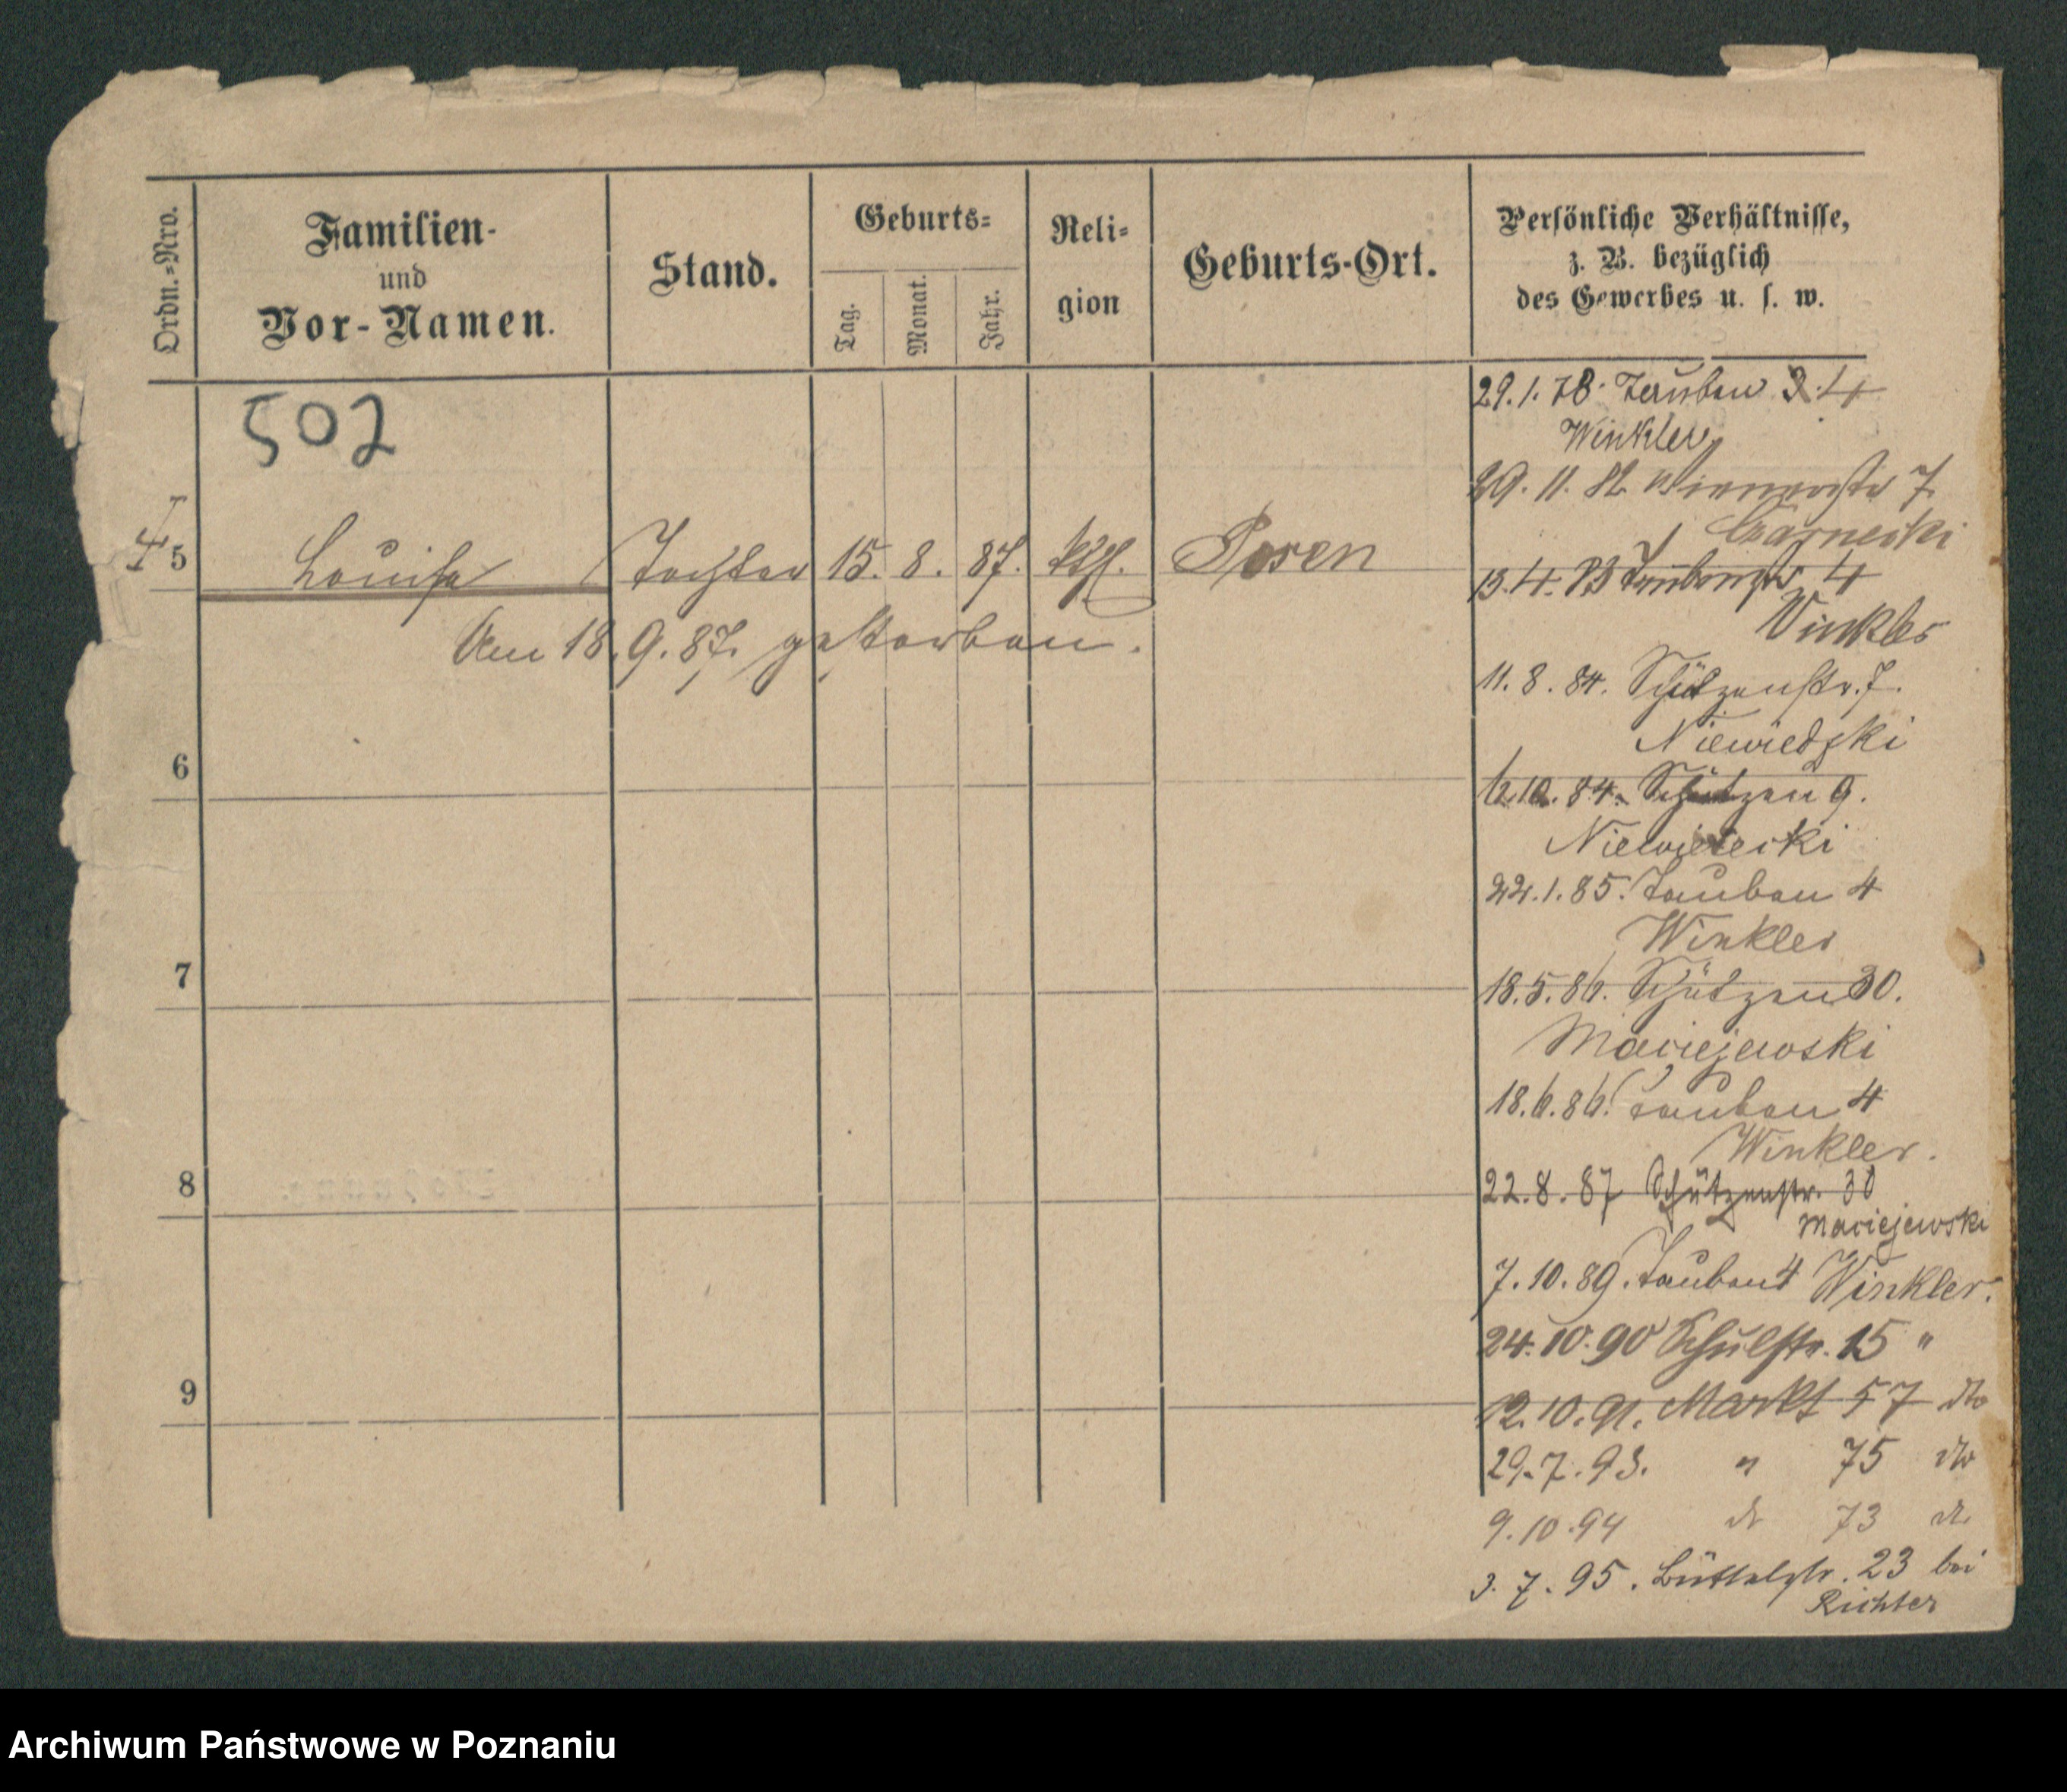 Ordn.=Nro.
Familien-
und
Vor-Namen.
Stand.
Geburts=
Tag.
Monat.
Jahr.
Reli=
gion
Geburts-Ort.
Persönliche Verhältnisse,
z. B. bezüglich
des Gewerbes u. s. w.
502
5 Louise Tochter 15. 8. 87. kth. Posen
Am 18.9.87. gestorben.
6
7
8
9
29.1.78. Tauben 4
Winkler
29.11.82 Wienerstr 7
Czarnecki
13.4.83 Taubenstr 4
Winkler
11.8.84. Schützenstr. 7.
Niewiedzki
12.10.84. Schützen 9.
Niewietecki
22.1.85. Tauben 4
Winkler
18.5.86. Schützen 30.
Maciejewski
18.6.86. Tauben 4
Winkler.
22.8.87 Schützenstr. 30
Maciejewski
7.10.89. Tauben 4 Winkler.
24.10.90 Schulstr. 15 "
12.10.91. Markt 57 dto
29.7.93. " 75 dto
9.10.94 dt 73 dt.
3.7.95. Büttelstr. 23 bei
Richter
Archiwum Państwowe w Poznaniu